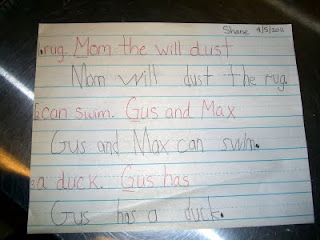 Shane 9/5/2011
rug. Mom the will dust
Mom will dust the rug
can swim. Gus and Max
Gus and Max can swim.
a duck. Gus has
Gus has a duck.